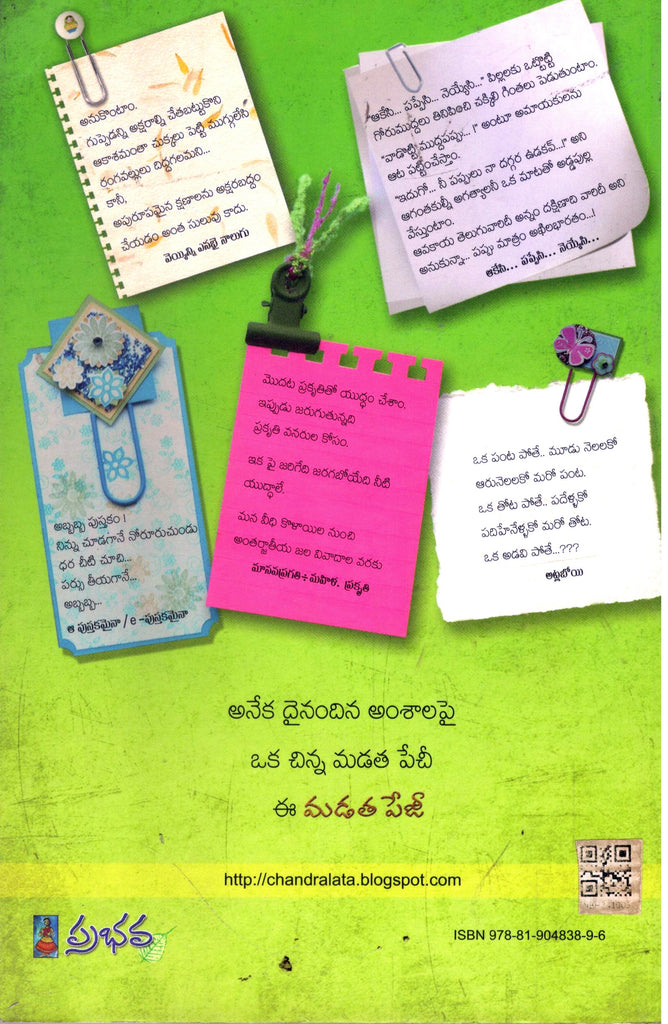 అనుకొంటాం.
గుప్పెడన్ని అక్షరాల్ని చేతబట్టుకొని
ఆకాశమంతా చుక్కలు పెట్టి ముగ్గులేసి
రంగవల్లులు దిద్దగలమని...
కానీ,
అపురూపమైన క్షణాలను అక్షరబద్ధం
చేయడం అంత సులువు కాదు.
వెయ్యిన్ని ఎనభై నాలుగు
"ఆకేసి... పప్పేసి... నెయ్యేసి..." పిల్లలకు ఒట్టొట్టి
గోరుముద్దలు తినిపించి చక్కిలి గింతలు పెడుతుంటాం.
"వాడొట్టి ముద్దపప్పు... !" అంటూ అమాయకులను
ఆట పట్టించేస్తాం.
"ఇదుగో... నీ పప్పులు నా దగ్గర ఉడకవ్...!" అని
ఆగంతకుల్నీ అగత్యాలనీ ఒక మాటతో అడ్డపుల్ల
వేస్తుంటాం.
ఆవకాయ తెలుగువారిదీ అన్నం దక్షిణాది వారిదీ అని
అనుకున్నా... పప్పు మాత్రం అఖిలభారతం...!
ఆకేసి... పప్పేసి... నెయ్యేసి...
అబ్బబ్బ పుస్తకం !
నిన్ను చూడగానే నోరూరుచుండు
ధర చీటి చూచి...
పర్సు తీయగానే...
అబ్బబ్బ...
ఆ పుస్తకమైనా / e -పుస్తకమైనా
మొదట ప్రకృతితో యుద్ధం చేశాం.
ఇప్పుడు జరుగుతున్నది
ప్రకృతి వనరుల కోసం.
ఇక పై జరిగేది జరగబోయేది నీటి
యుద్ధాలే.
మన వీధి కొళాయిల నుంచి
అంతర్జాతీయ జల వివాదాల వరకు
మానవప్రగతి÷మహిళ. ప్రకృతి
ఒక పంట పోతే.. మూడు నెలలకో
ఆరునెలలకో మరో పంట.
ఒక తోట పోతే.. పదేళ్ళకో
పదిహేనేళ్ళకో మరో తోట.
ఒక అడవి పోతే...???
అట్లబోయి
అనేక దైనందిన అంశాలపై
ఒక చిన్న మడత పేచీ
ఈ మడత పేజీ
http://chandralata.blogspot.com
ప్రభవ
ISBN 978-81-904838-9-6